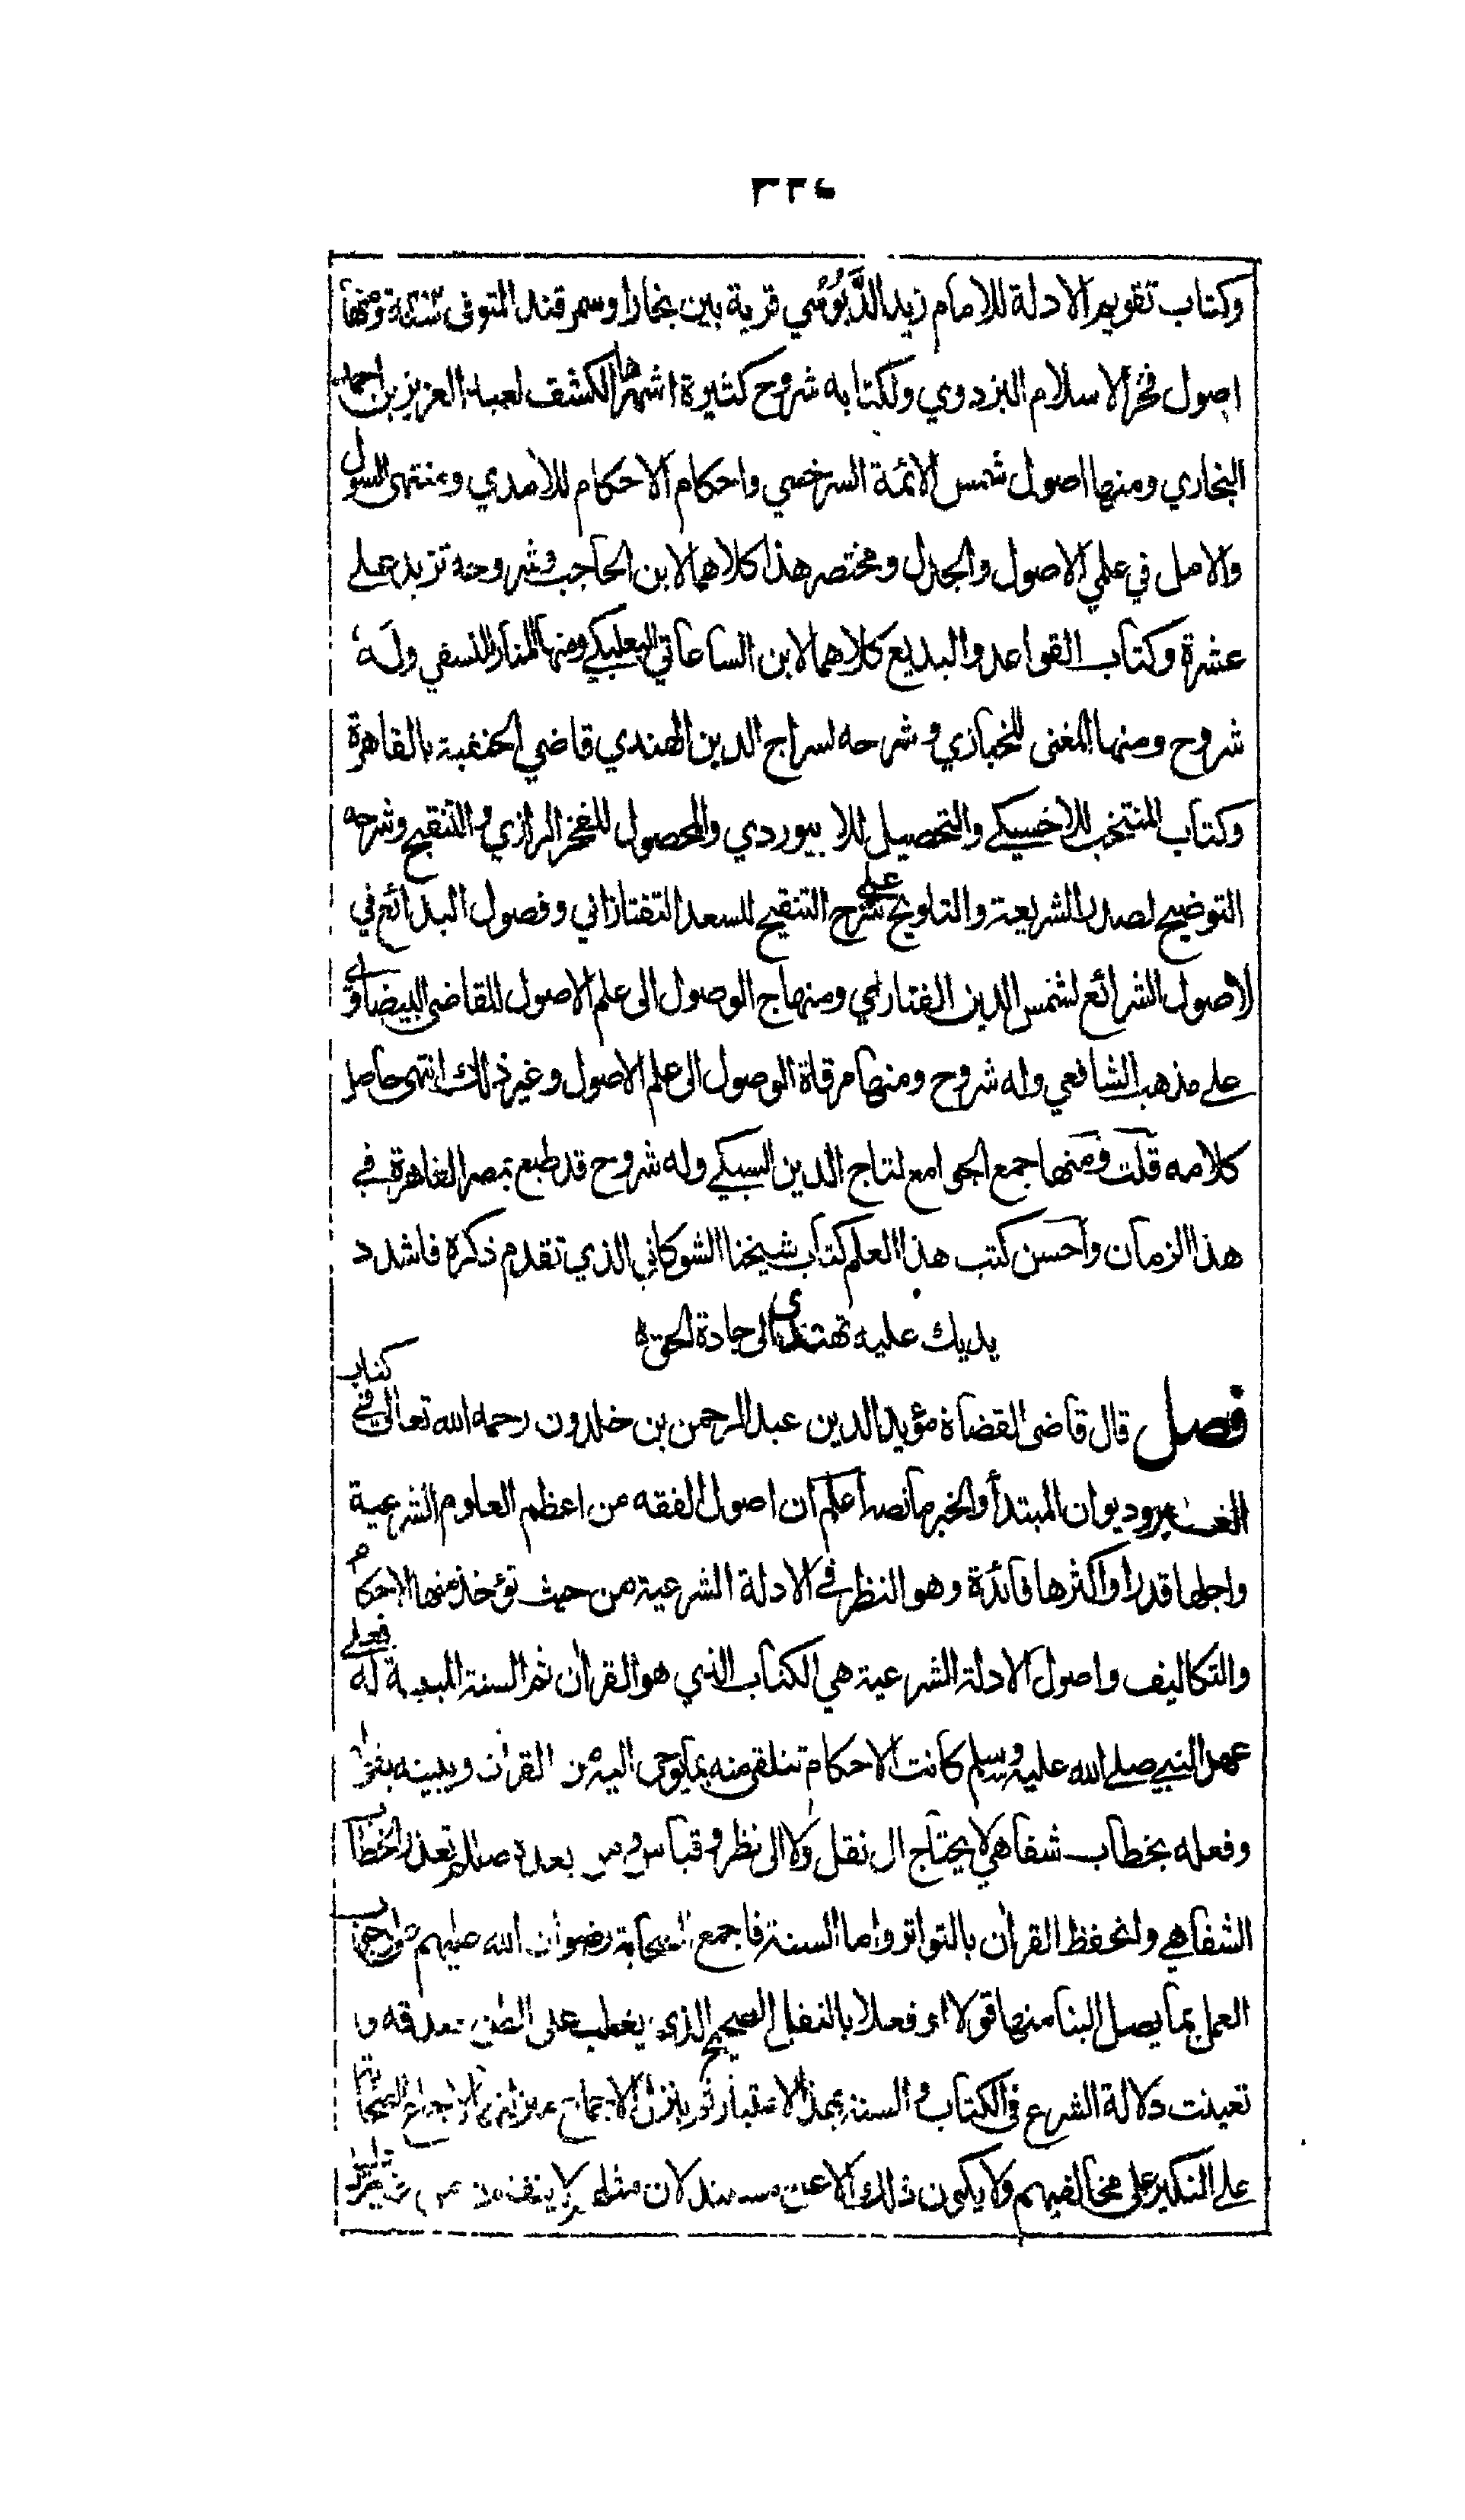 وكتاب تقويم الادلة للامام زيد الدَّبُوسي قرية بين بخارا وسمرقند المتوفى ومنها
اصول فخر الاسلام البزدوي ولكتابه شروح كثيرة اشهرها الكشف لعبد العزيز بن احمد
البخاري ومنها اصول شمس الائمة السرخسي واحكام الاحكام للامدي ومنتهى السول
والامل في علمي الاصول والجدل ومختصر هذا كلاهما لابن الحاجب وشروحه تزيد على
عشرة وكتاب القواعد والبديع كلاهما لابن الساعاتي البعلبكي ومنها المنار للنسفي وله
شروح ومنها المغنى للخبازي وشرحه لسراج الدين الهندي قاضي الحنفية بالقاهرة
وكتاب المنتخب للاخسيكي والتحصيل للابيوردي والمحصول للفخر الرازي والتنقيح وشرحه
التوضيح لصدر الشريعة والتلويح على شرح التنقيح للسعد التفتازاني وفصول البدائع في
لاصول الشرائع لشمس الدين الفناري ومنهاج الوصول الى علم الاصول للقاضي البيضاوي
على مذهب الشافعي وله شروح ومنها مرقاة الوصول الى علم الاصول وغير ذلك انتهى حاصل
كلامه قلت ومنها جمع الجوامع لتاج الدين السبكي وله شروح قد طبع بمصر القاهرة في
هذا الزمان واحسن كتب هذا العلم كتاب شيخنا الشوكاني الذي تقدم ذكره فاشدد
يديك عليه تهتدى الى جادة الحق ه
فصل قال قاضى القضاة مؤيد الدين عبد الرحمن بن خلدون رحمه الله تعالى في كتاب
العبر وديوان المبتدأ والخبر ما نصه اعلم ان اصول الفقه من اعظم العلوم الشرعية
واجلها قدرا واكثرها فائدة وهو النظر في الادلة الشرعية من حيث تؤخذ منها الاحكام
والتكاليف واصول الادلة الشرعية هي الكتاب الذي هو القران ثم السنة المبينة له فعلى
عهد النبي صلى الله عليه وسلم كانت الاحكام تتلقى منه بما يوحى اليه من القران ويبينه بقوله
وفعله بخطاب شفاهي لا يحتاج الى نقل ولا الى نظر وقياس ومن بعده صللم تعذر الخطاب
الشفاهي وانحفظ القران بالتواتر واما السنة فاجمع الصحابة رضوان الله عليهم على وجوب
العمل بما يصل الينا منها قولا او فعلا بالنقل الصحيح الذي يغلب على الظن صدقه و
تعينت دلالة الشرع في الكتاب والسنة بهذا الاعتبار ثم ينزل الاجماع منزلتهما لاجماع الصحابة
على النكير على مخالفيهم ولا يكون ذلك الا عن مستند لان مثلهم لا يتفقون من غير